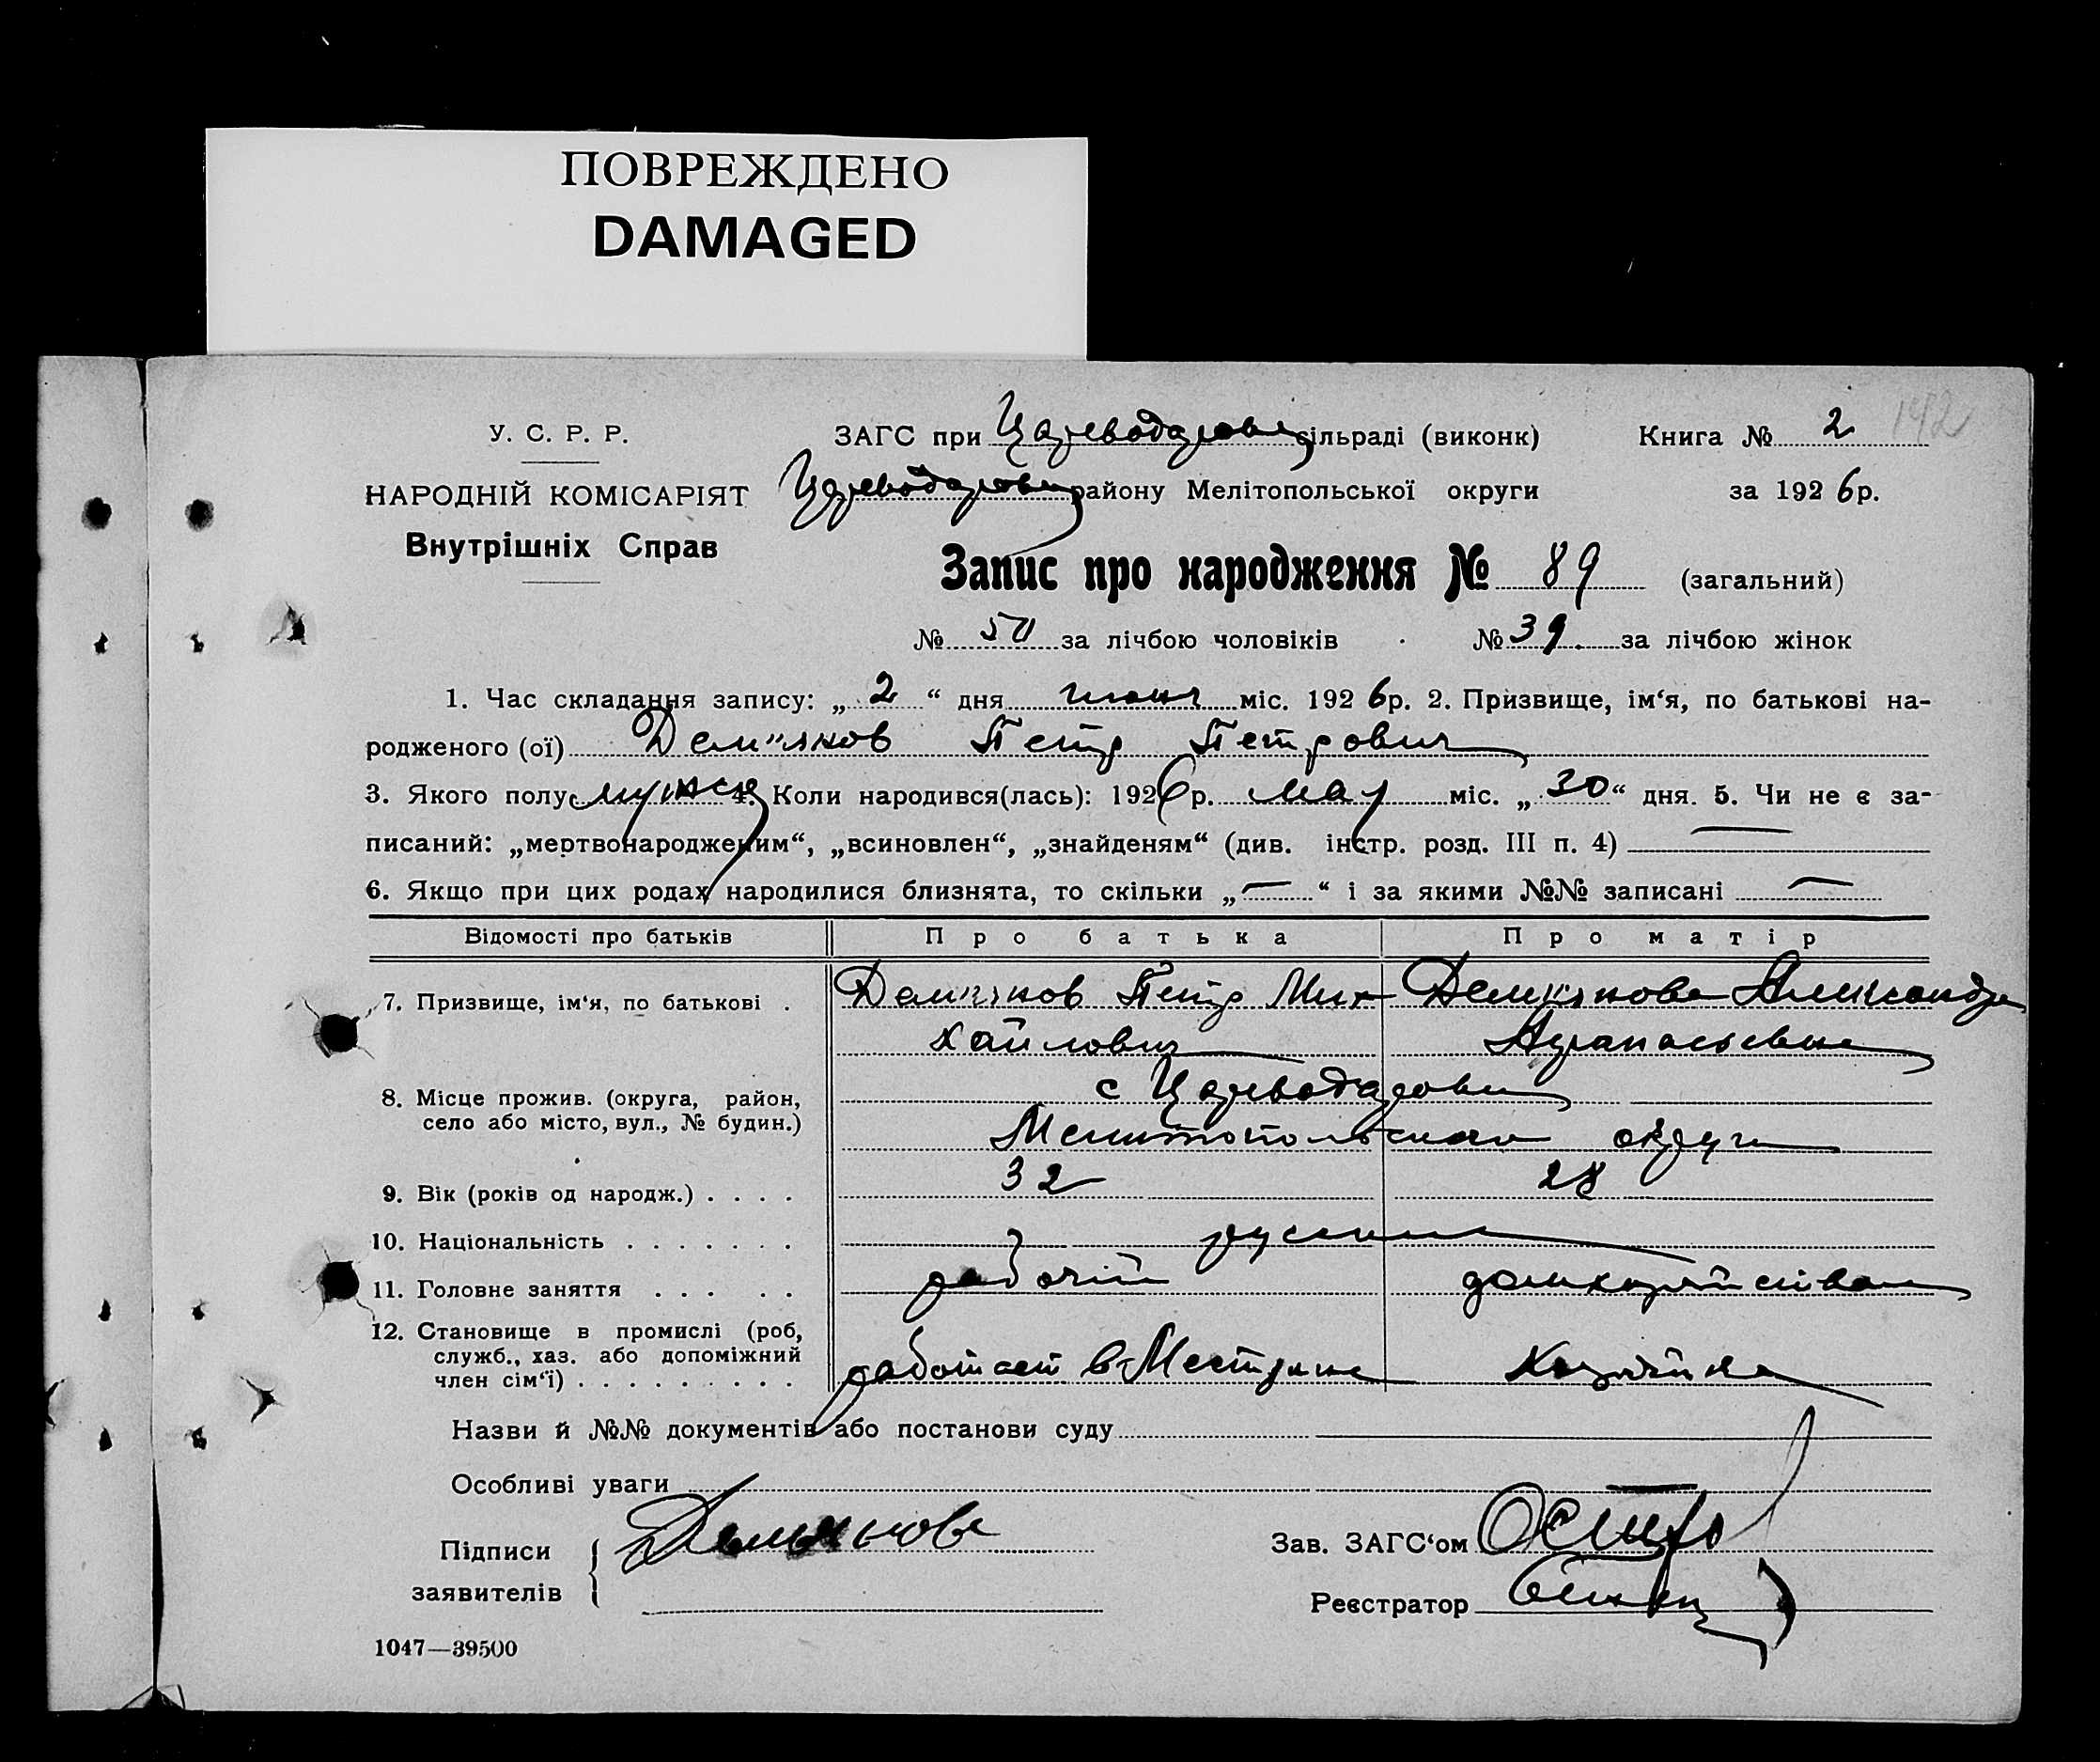 ПОВРЕЖДЕНО
DAMAGED
У. С. Р. Р.
ЗАГС при Цареводаровск сільраді (виконк)
Книга № 2 142
НАРОДНІЙ КОМІСАРІЯТ
району Мелітопольської округи
за 1926р.
Внутрішніх Справ
Запис про народження № 89 (загальний)
№ 50 за лічбою чоловіків № 39. за лічбою жінок
1. Час складання запису: „ 2 “ дня июня міс. 1926р. 2. Призвище, ім‘я, по батькові на-
родженого (ої) Демьянов Петр Петрович
3. Якого полу мужск 4. Коли народився(лась): 1926р. мая міс. „ 30 “ дня. 5. Чи не є за-
писаний: „мертвонародженим“, „всиновлен“, „знайденям“ (див. інстр. розд. III п. 4) —
6. Якщо при цих родах народилися близнята, то скільки „ — “ і за якими №№ записані —
Відомості про батьків Про батька Про матір
7. Призвище, ім‘я, по батькові . Демьянов Петр Ми- Демьянова Александра
хайлович Афанасьевна
8. Місце прожив. (округа, район,
село або місто, вул., № будин.)
Мелитопольской округи
9. Вік (років од народж.) . . . . 32 28
10. Національність . . . . . . . русские
11. Головне заняття . . . . . рабочий домохозяйство
12. Становище в промислі (роб,
служб., хаз. або допоміжний
член сім‘ї) . . . . . . . . . работает в Местране хозяйка
Назви й №№ документів або постанови суду
Особливі уваги —
Підписи
заявителів
Демьянова
Зав. ЗАГС‘ом
Реєстратор
1047—39500